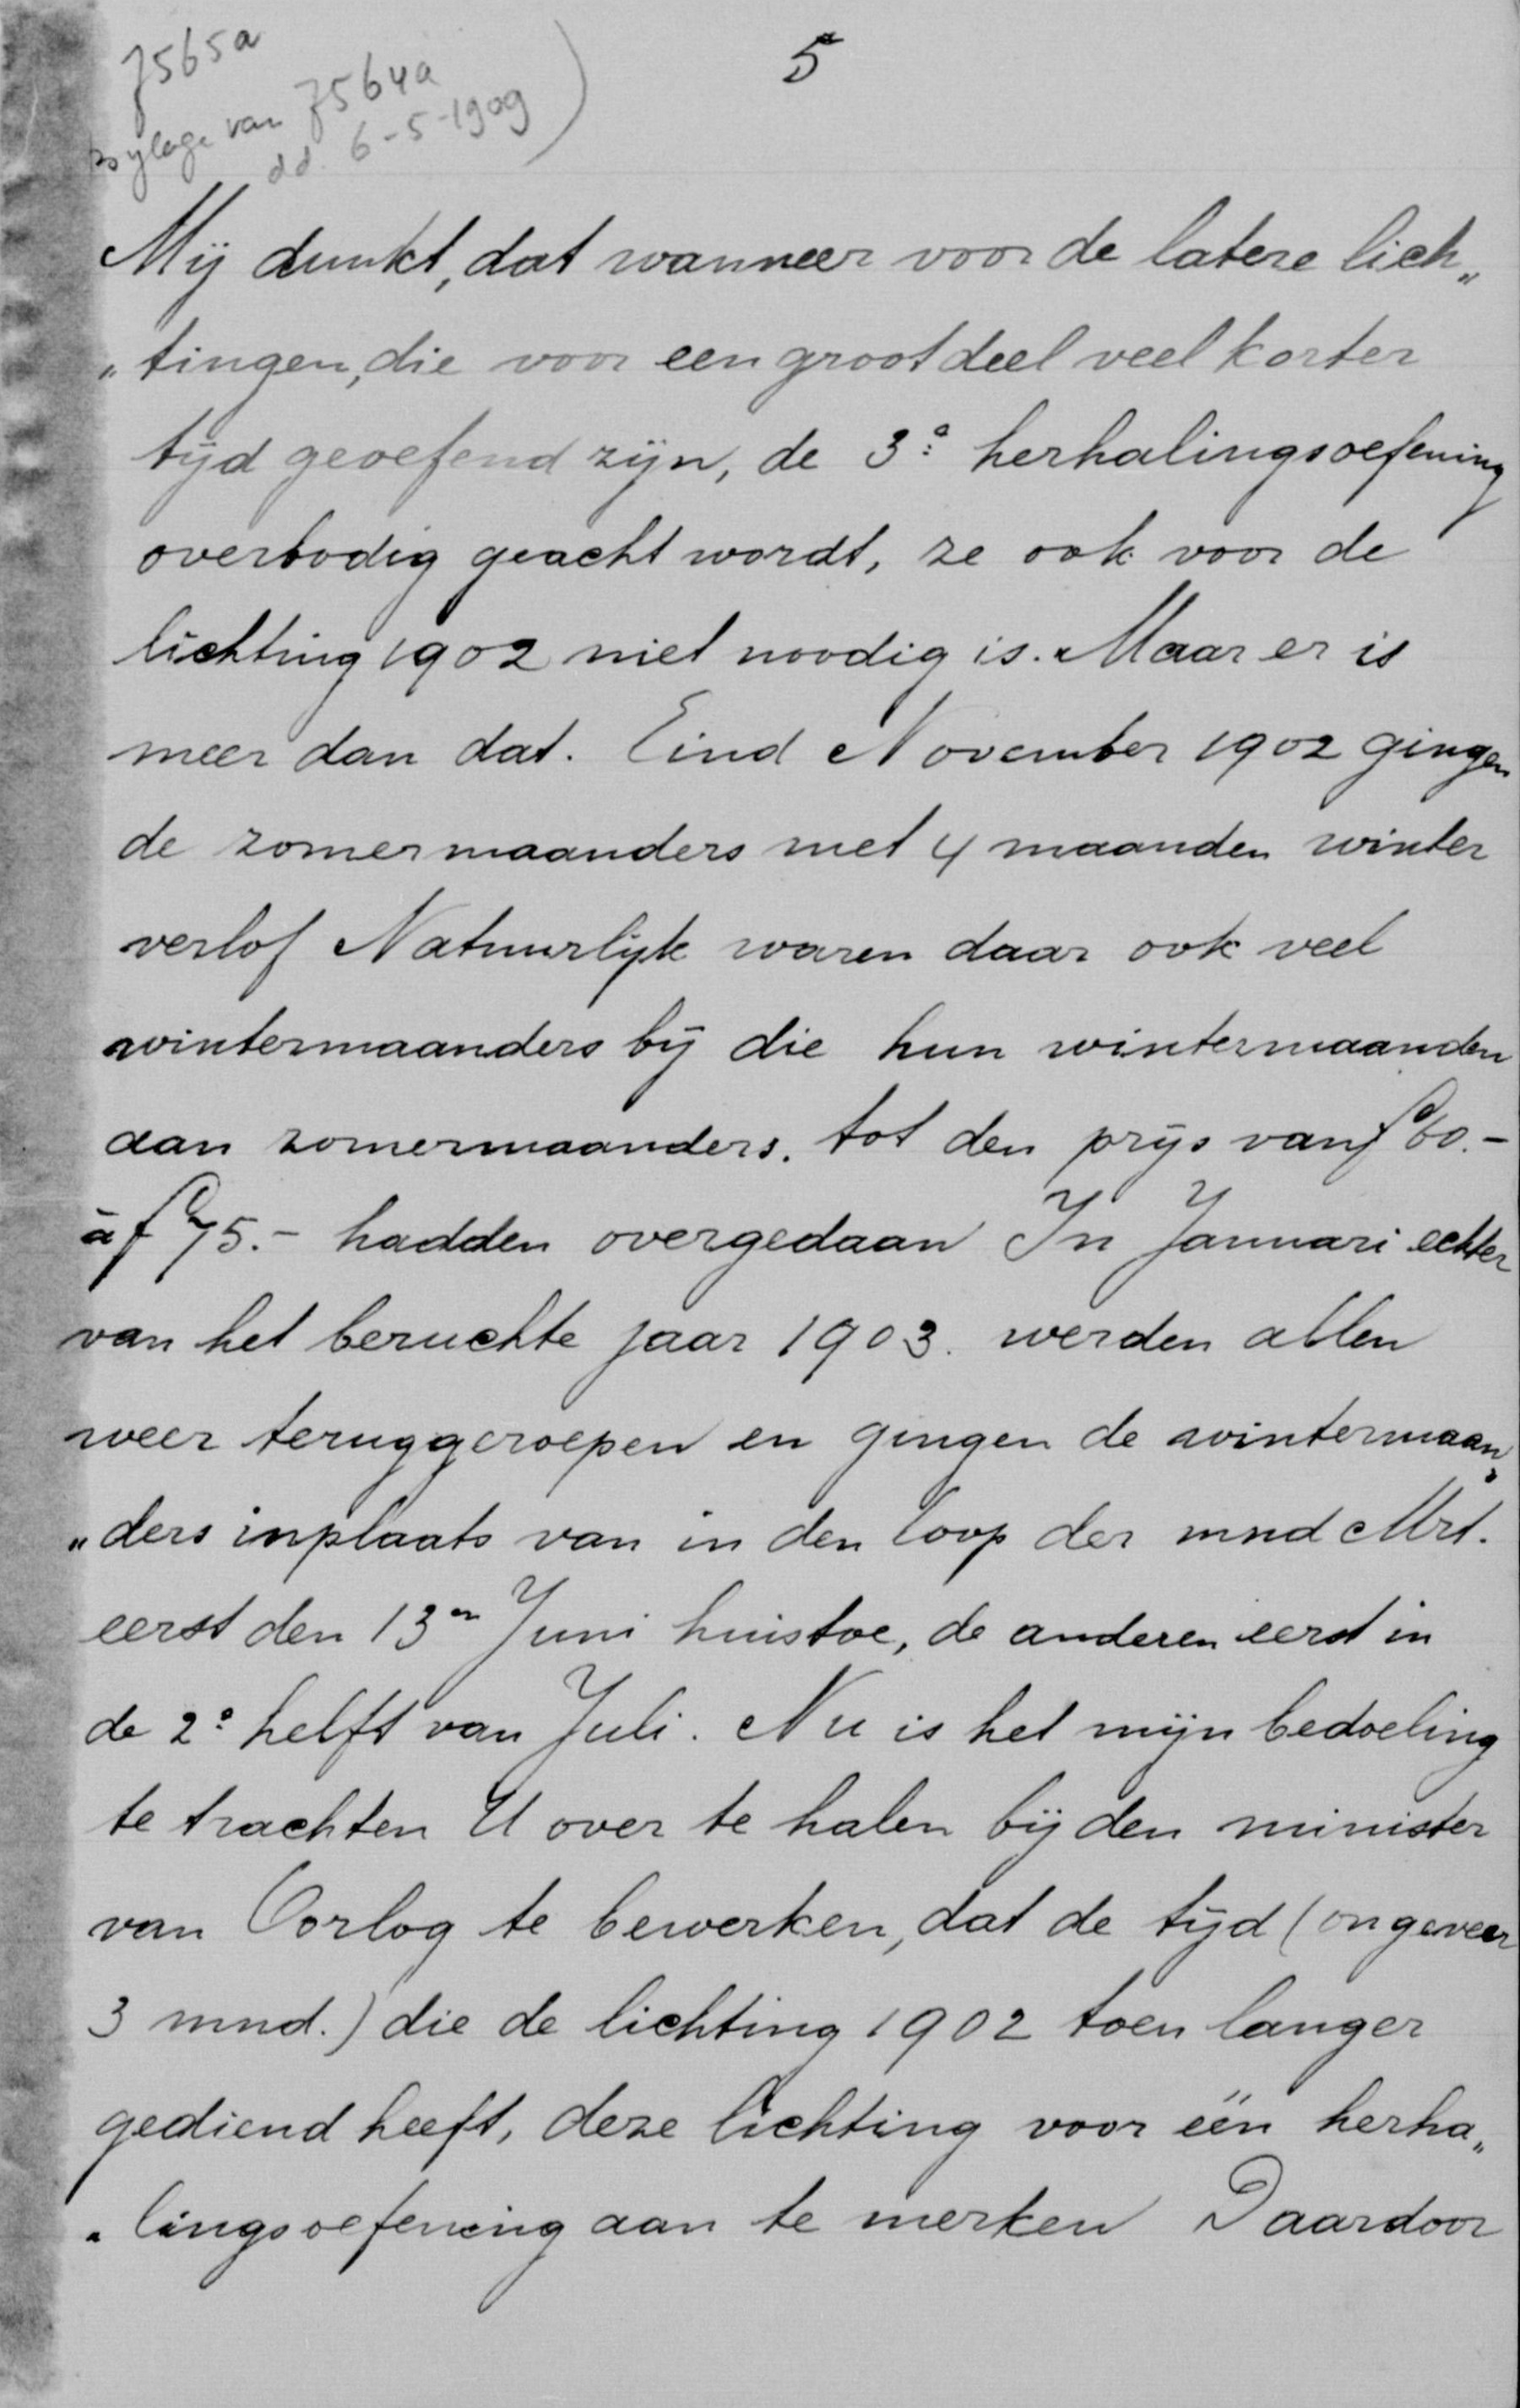 7565a
5
Bylage van 7564a
dd. 6-5-1909)
Mij dunkt, dat wanneer voor de latere lich„
„tingen, die voor een groot deel veel korter
tijd geoefend zijn, de 3e herhalingsoefening
overbodig geacht wordt, ze ook voor de
lichting 1902 niet noodig is. Maar er is
meer dan dat. Eind November 1902 gingen
de zomermaanders met 4 maanden winter
verlof Natuurlijk waren daar ook veel
wintermaanders bij die hun wintermaanden
aan zomermaanders. tot den prijs van f 60.-
à f 75.- hadden overgedaan In Januari echter
van het beruchte jaar 1903. werden allen
weer teruggeroepen en gingen de wintermaan„
„ders inplaats van in den loop der mnd Mrt.
eerst den 13en Juni huistoe, de anderen eerst in
de 2e helft van Juli. Nu is het mijn bedoeling
te trachten U over te halen bij den minister
van Oorlog te bewerken, dat de tijd (ongeveer
3 mnd.) die de lichting 1902 toen langer
gediend heeft, deze lichting voor één herha„
„lingsoefening aan te merken Daardoor